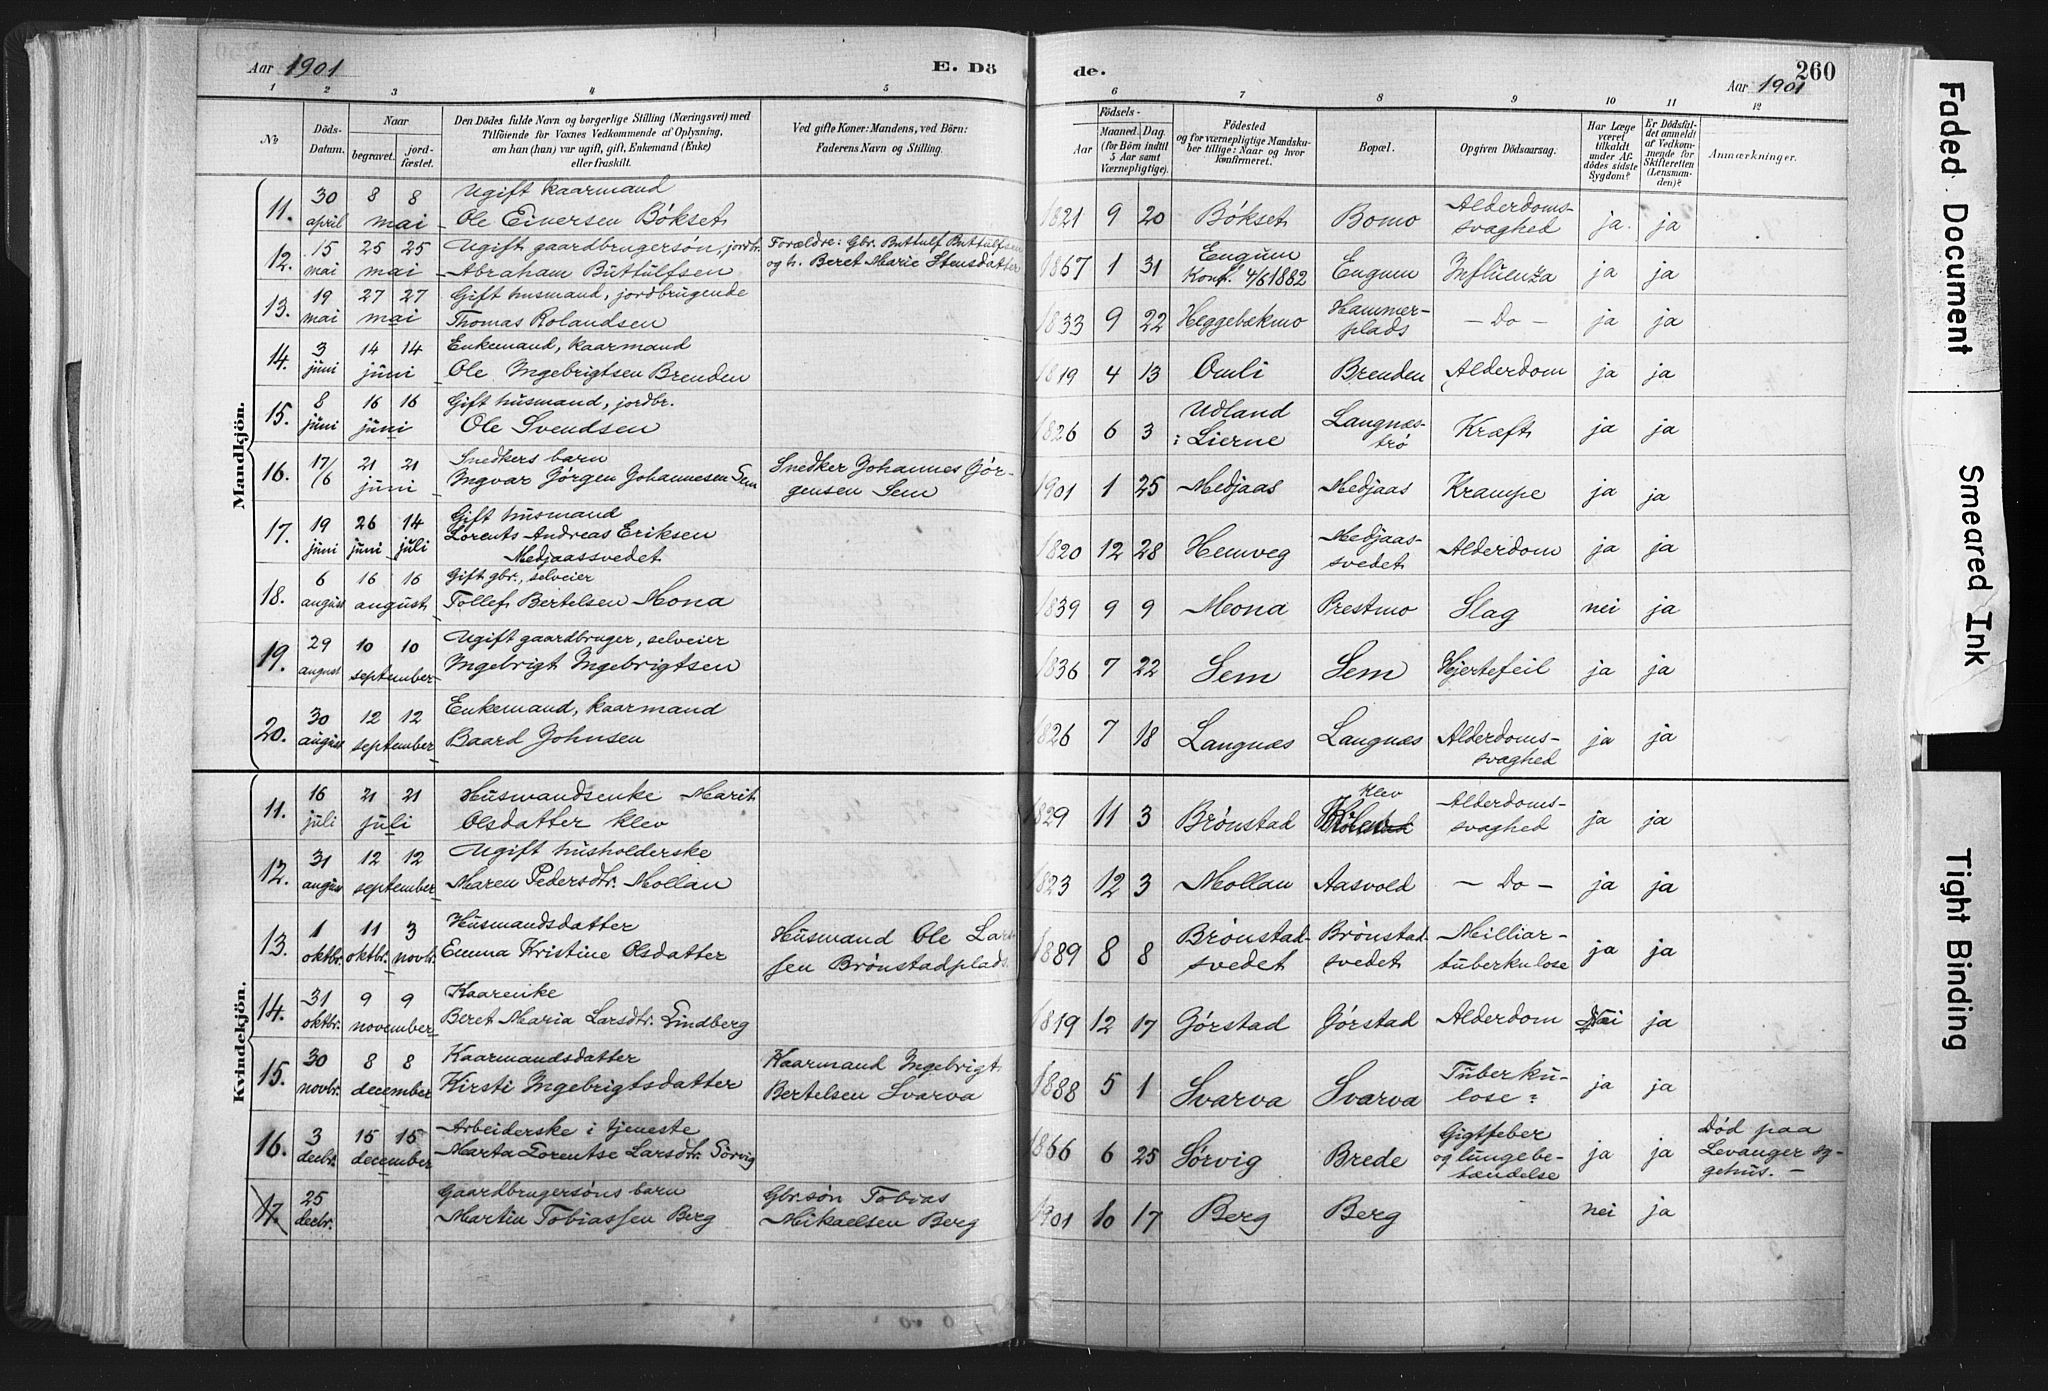 Aar 1901
E. Dö
de.
260
Aar 1901
1 2 3 4 5 6 7 8 9 10 11 12
No
Döds-Datum.
Naar
begravet.
jord-fæstet.
Den Dödes fulde Navn og borgerlige Stilling (Næringsvei) med
Tilföiende for Voxnes Vedkommende af Oplysning,
om han (hun) var ugift, gift, Enkemand (Enke)
eller fraskilt.
Ved gifte Koner: Mandens, ved Börn:
Faderens Navn og Stilling.
Födsels-
Aar
Maaned. Dag.
(for Börn indtil
5 Aar samt
Værnepligtige).
Födested
og for værnepligtige Mandsku-
ber tillige: Naar og hvor
konfirmeret.
Bopæl.
Opgiven Dödsaarsag.
Har Læge
været
tilkaldt
under Af-
dödes sidste
Sygdom?
Er Dödsfal-
det anmeldt
af Vedkom-
mende for
Skifteretten
(Lensman-
den)?
Anmærkninger.
Mandkjön.
11. 30 april 8 8 mai Ugift kaarmand
Ole Einersen Bökset 1821 9 20 Bökset Bomo Alderdoms-svaghed ja ja
12. 15 mai 25 25 mai Ugift gaardbrugersøn, jordbr.
Abraham Buttulfsen Forældre: Gbr. Buttulf Buttulfsen
og h. Beret Marie Stensdatter 1867 1 31 Eugum
Konf. 4/6 1882 Eugum Influenza ja ja
13. 19 mai 27 27 mai Gift husmand, jordbrugende
Thomas Rolandsen 1833 9 22 Heggebækmo Hammer-plads — Do — ja ja
14. 3 juni 14 14 juni Enkemand, kaarmand
Ole Ingebrigtsen Brenden 1819 4 13 Omli Brenden Alderdom ja ja
15. 8 juni 16 16 juni Gift husmand, jordbr.
Ole Svendsen 1826 6 3 Udland
i Lierne Langnæs-trø Kræft ja ja
16. 17/6 21 21 juni Snedkers barn
Ingvar Jørgen Johannesen Sem Snedker Johannes Jör-
gensen Sem 1901 1 25 Medjaas Medjaas Krampe ja ja
17. 19 juni 26 juni 14 juli Gift husmand
Lorents Andreas Eriksen
Medjaassvedet 1820 12 28 Hemveg Medjaas-svedet Alderdom ja ja
18. 6 august 16 16 august Gift gbr., selveier
Tollef Bertelsen Mona 1839 9 9 Mona Prestmo Slag nei ja
19. 29 august 10 10 september Ugift gaardbruger, selveier
Ingebrigt Ingebrigtsen 1836 7 22 Sem Sem Hjertefeil ja ja
20. 30 august 12 12 september Enkemand, kaarmand
Baard Johnsen 1826 7 18 Langnæs Langnæs Alderdoms-svaghed ja ja
Kvindekjön.
11. 16 juli 21 21 juli Husmandsenke Marit
Olsdatter Klev 1829 11 3 Brönstad Klev Alderdoms-svaghed ja ja
12. 31 august 12 12 september Ugift husholderske
Maren Pedersdtr. Mollan 1823 12 3 Mollan Aasvold — Do — ja ja
13. 1 oktbr. 11 oktbr. 3 novbr. Husmandsdatter
Emma Kristine Olsdatter Husmand Ole Lars-
sen Brønstadplads. 1889 8 8 Brønstad-svedet Brønstad-svedet Milliar-tuberkulose ja ja
14. 31 oktbr. 9 9 november Kaarenke
Beret Maria Larsdtr. Lindberg 1819 12 17 Gjörstad Gjörstad Alderdom Nei ja
15. 30 novbr. 8 8 december Kaarmandsdatter
Kirsti Ingebrigtsdatter Kaarmand Ingebrigt
Bertelsen Svarva 1888 5 1 Svarva Svarva Tuberku-lose ja ja
16. 3 decbr. 15 15 december Arbeiderske i tjeneste
Marta Lorentse Larsdtr. Sörvig 1866 6 25 Sörvig Brede Gigtfeber
og lungebe-
tændelse ja ja Död paa
Levanger sy-
gehus. —
17. 25 decbr. Gaardbrugersöns barn
Martin Tobiassen Berg Gbr.søn Tobias
Mikaelsen Berg 1901 10 17 Berg Berg nei ja
Faded Document
Smeared Ink
Tight Binding